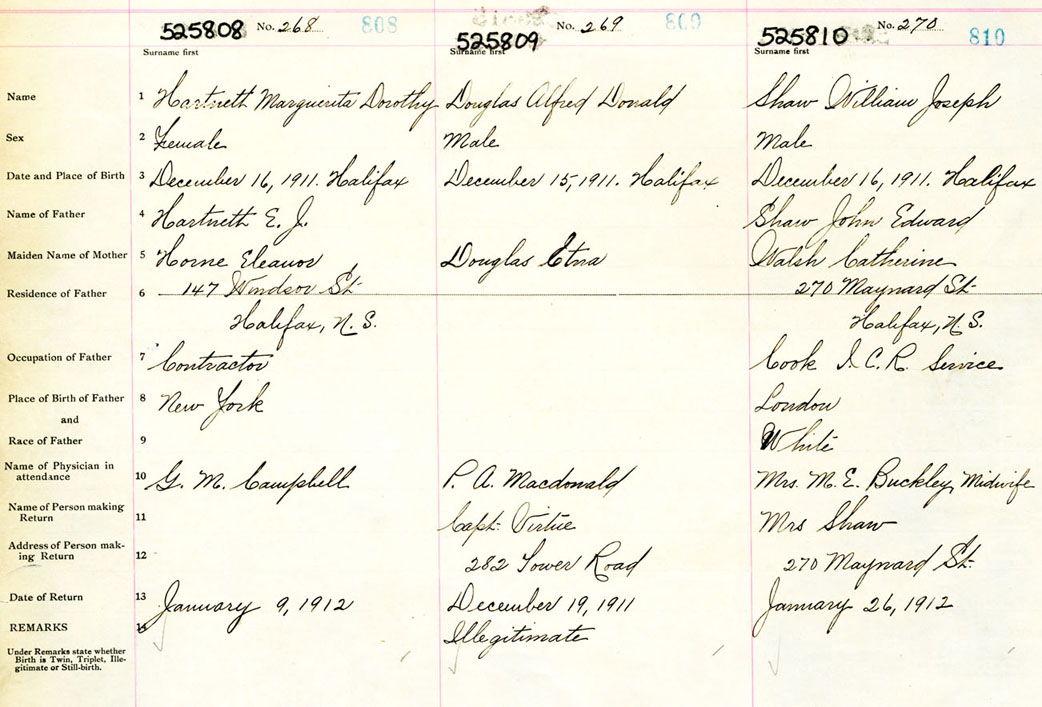 525808 No. 268 808 525809 No. 269 809 525810 No. 270 810
Surname first Surname first Surname first
Name 1 Hartnett Marguerita Dorothy Douglas Alfred Donald Shaw William Joseph
Sex 2 Female Male Male
Date and Place of Birth 3 December 16, 1911. Halifax December 15, 1911. Halifax December 16, 1911. Halifax
Name of Father 4 Hartnett E. J. Shaw John Edward
Maiden Name of Mother 5 Horne Eleanor Douglas Etna Walsh Catherine
Residence of Father 6 147 Windsor St. 270 Maynard St.
Halifax, N. S. Halifax, N. S.
Occupation of Father 7 Contractor Cook I. C. R. Service
Place of Birth of Father 8 New York London
and
Race of Father 9 White
Name of Physician in
attendance 10 G. M. Campbell P. A. Macdonald Mrs. M. E. Buckley, Midwife
Name of Person making
Return 11 Capt. Virtue Mrs Shaw
Address of Person mak-
ing Return 12 282 Tower Road 270 Maynard St.
Date of Return 13 January 9, 1912 December 19, 1911 January 26, 1912
REMARKS 14 Illegitimate
Under Remarks state whether
Birth is Twin, Triplet, Ille-
gitimate or Still-birth.